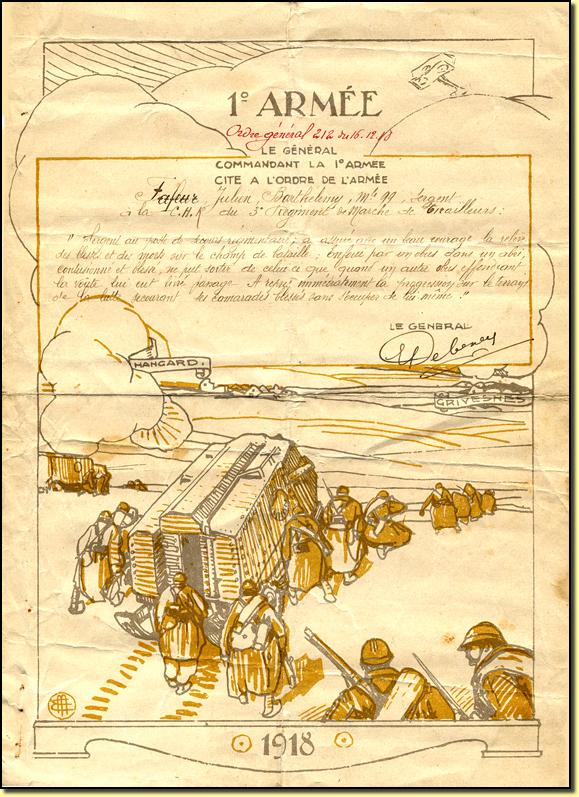 1º ARMÉE
Ordre général 212 du 16.12.18
LE GÉNÉRAL
COMMANDANT LA 1º ARMEE
CITE A L'ORDRE DE L'ARMÉE
Julien, Barthelemy, Mle 99, Sergent
à la C.H.R du 3e Regiment de Marche de Tirailleurs:
" Sergent au poste de secours regimentaire; a assuré avec un beau courage la relève
des blessés et des morts sur le champ de bataille; enfoui par un obus dans un abri,
contusionné et blessé, ne put sortir de celui-ce que quand un autre obus effondrant
la voûte lui eut livré passage. A repris immediatement la progression sur le terrain
de la lutte secourant ses camarades blessés sans s'occuper de lui même."
LE GENERAL
Debeney
HANGARD.
GRIVESNES
1918